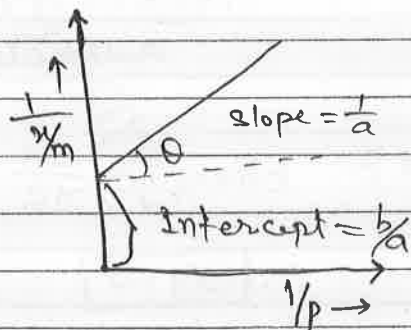 1
x/m
slope = 1/a
θ
Intercept = b/a
1/p →